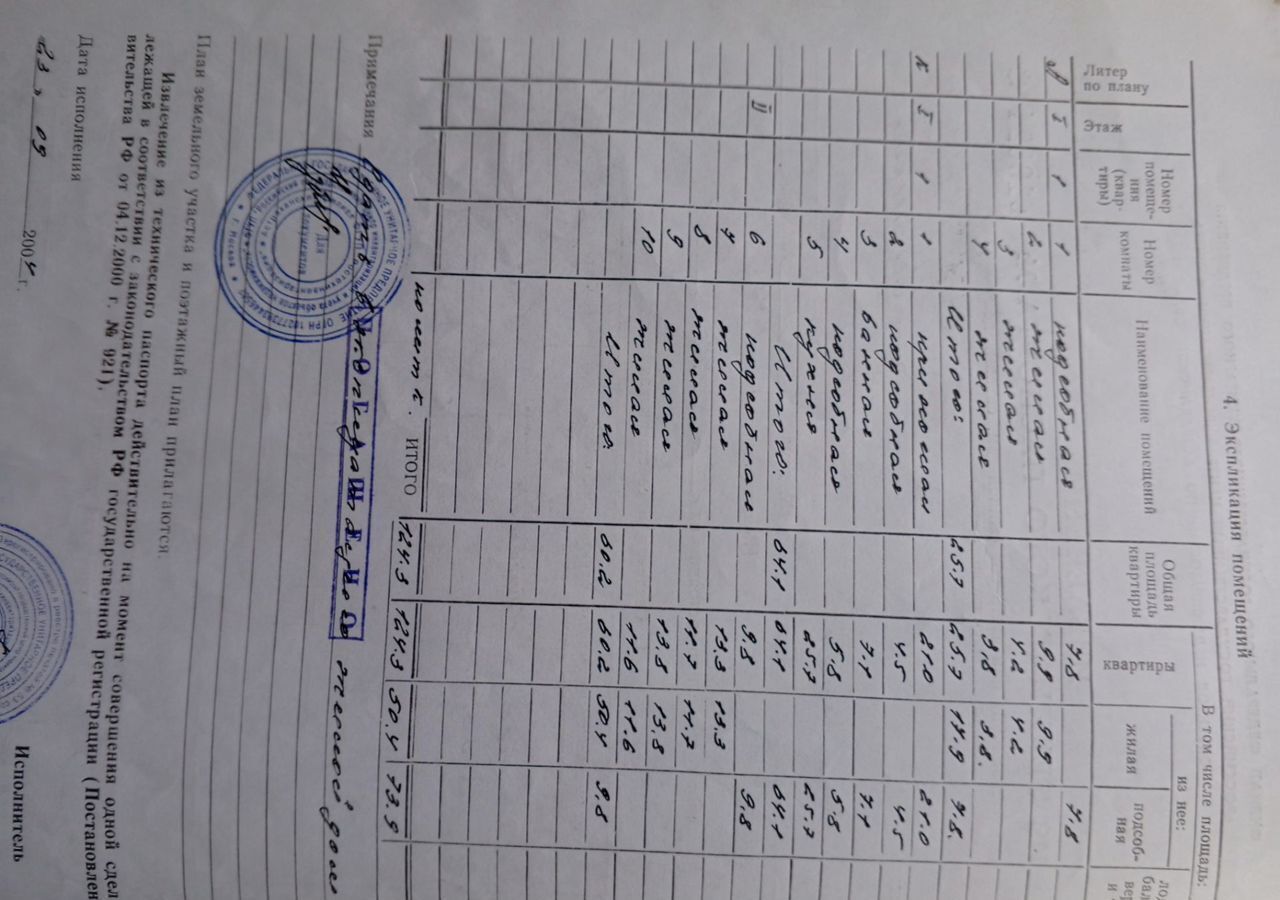 4. Экспликация помещений
Литер по плану | Этаж | Номер помещения (квартиры) | Номер комнаты | Наименование помещений | Общая площадь квартиры | В том числе площадь:
квартиры | из нее: жилая | подсобная
I | 1 | 1 | подсобная | 7.8 | 7.8
2 | жилая | 9.9 | 9.9
3 | жилая | 4.2 | 4.2
4 | жилая | 3.8 | 3.8.
Итого: | 25.7 | 25.7 | 17.9 | 7.8.
К | I | 1 | 1 | прихожая | 21.0 | 21.0
2 | подсобная | 4.5 | 4.5
3 | ванная | 7.1 | 7.1
4 | подсобная | 5.8 | 5.8
5 | кухня | 25.7 | 25.7
Итого: | 64.1 | 64.1 | 64.1
II | 6 | подсобная | 9.8 | 9.8
7 | жилая | 13.3 | 13.3
8 | жилая | 11.7 | 11.7
9 | жилая | 13.8 | 13.8
10 | жилая | 11.6 | 11.6
Итого: | 60.2 | 60.2 | 50.4 | 9.8
ИТОГО | 124.3 | 124.3 | 50.4 | 73.9
Примечания
жилой дом
План земельного участка и поэтажный план прилагаются.
Извлечение из технического паспорта действительно на момент совершения одной сдел
лежащей в соответствии с законодательством РФ государственной регистрации (Постановлен
вительства РФ от 04.12.2000 г. № 921).
Дата исполнения
23 » 09 2004 г.
Исполнитель